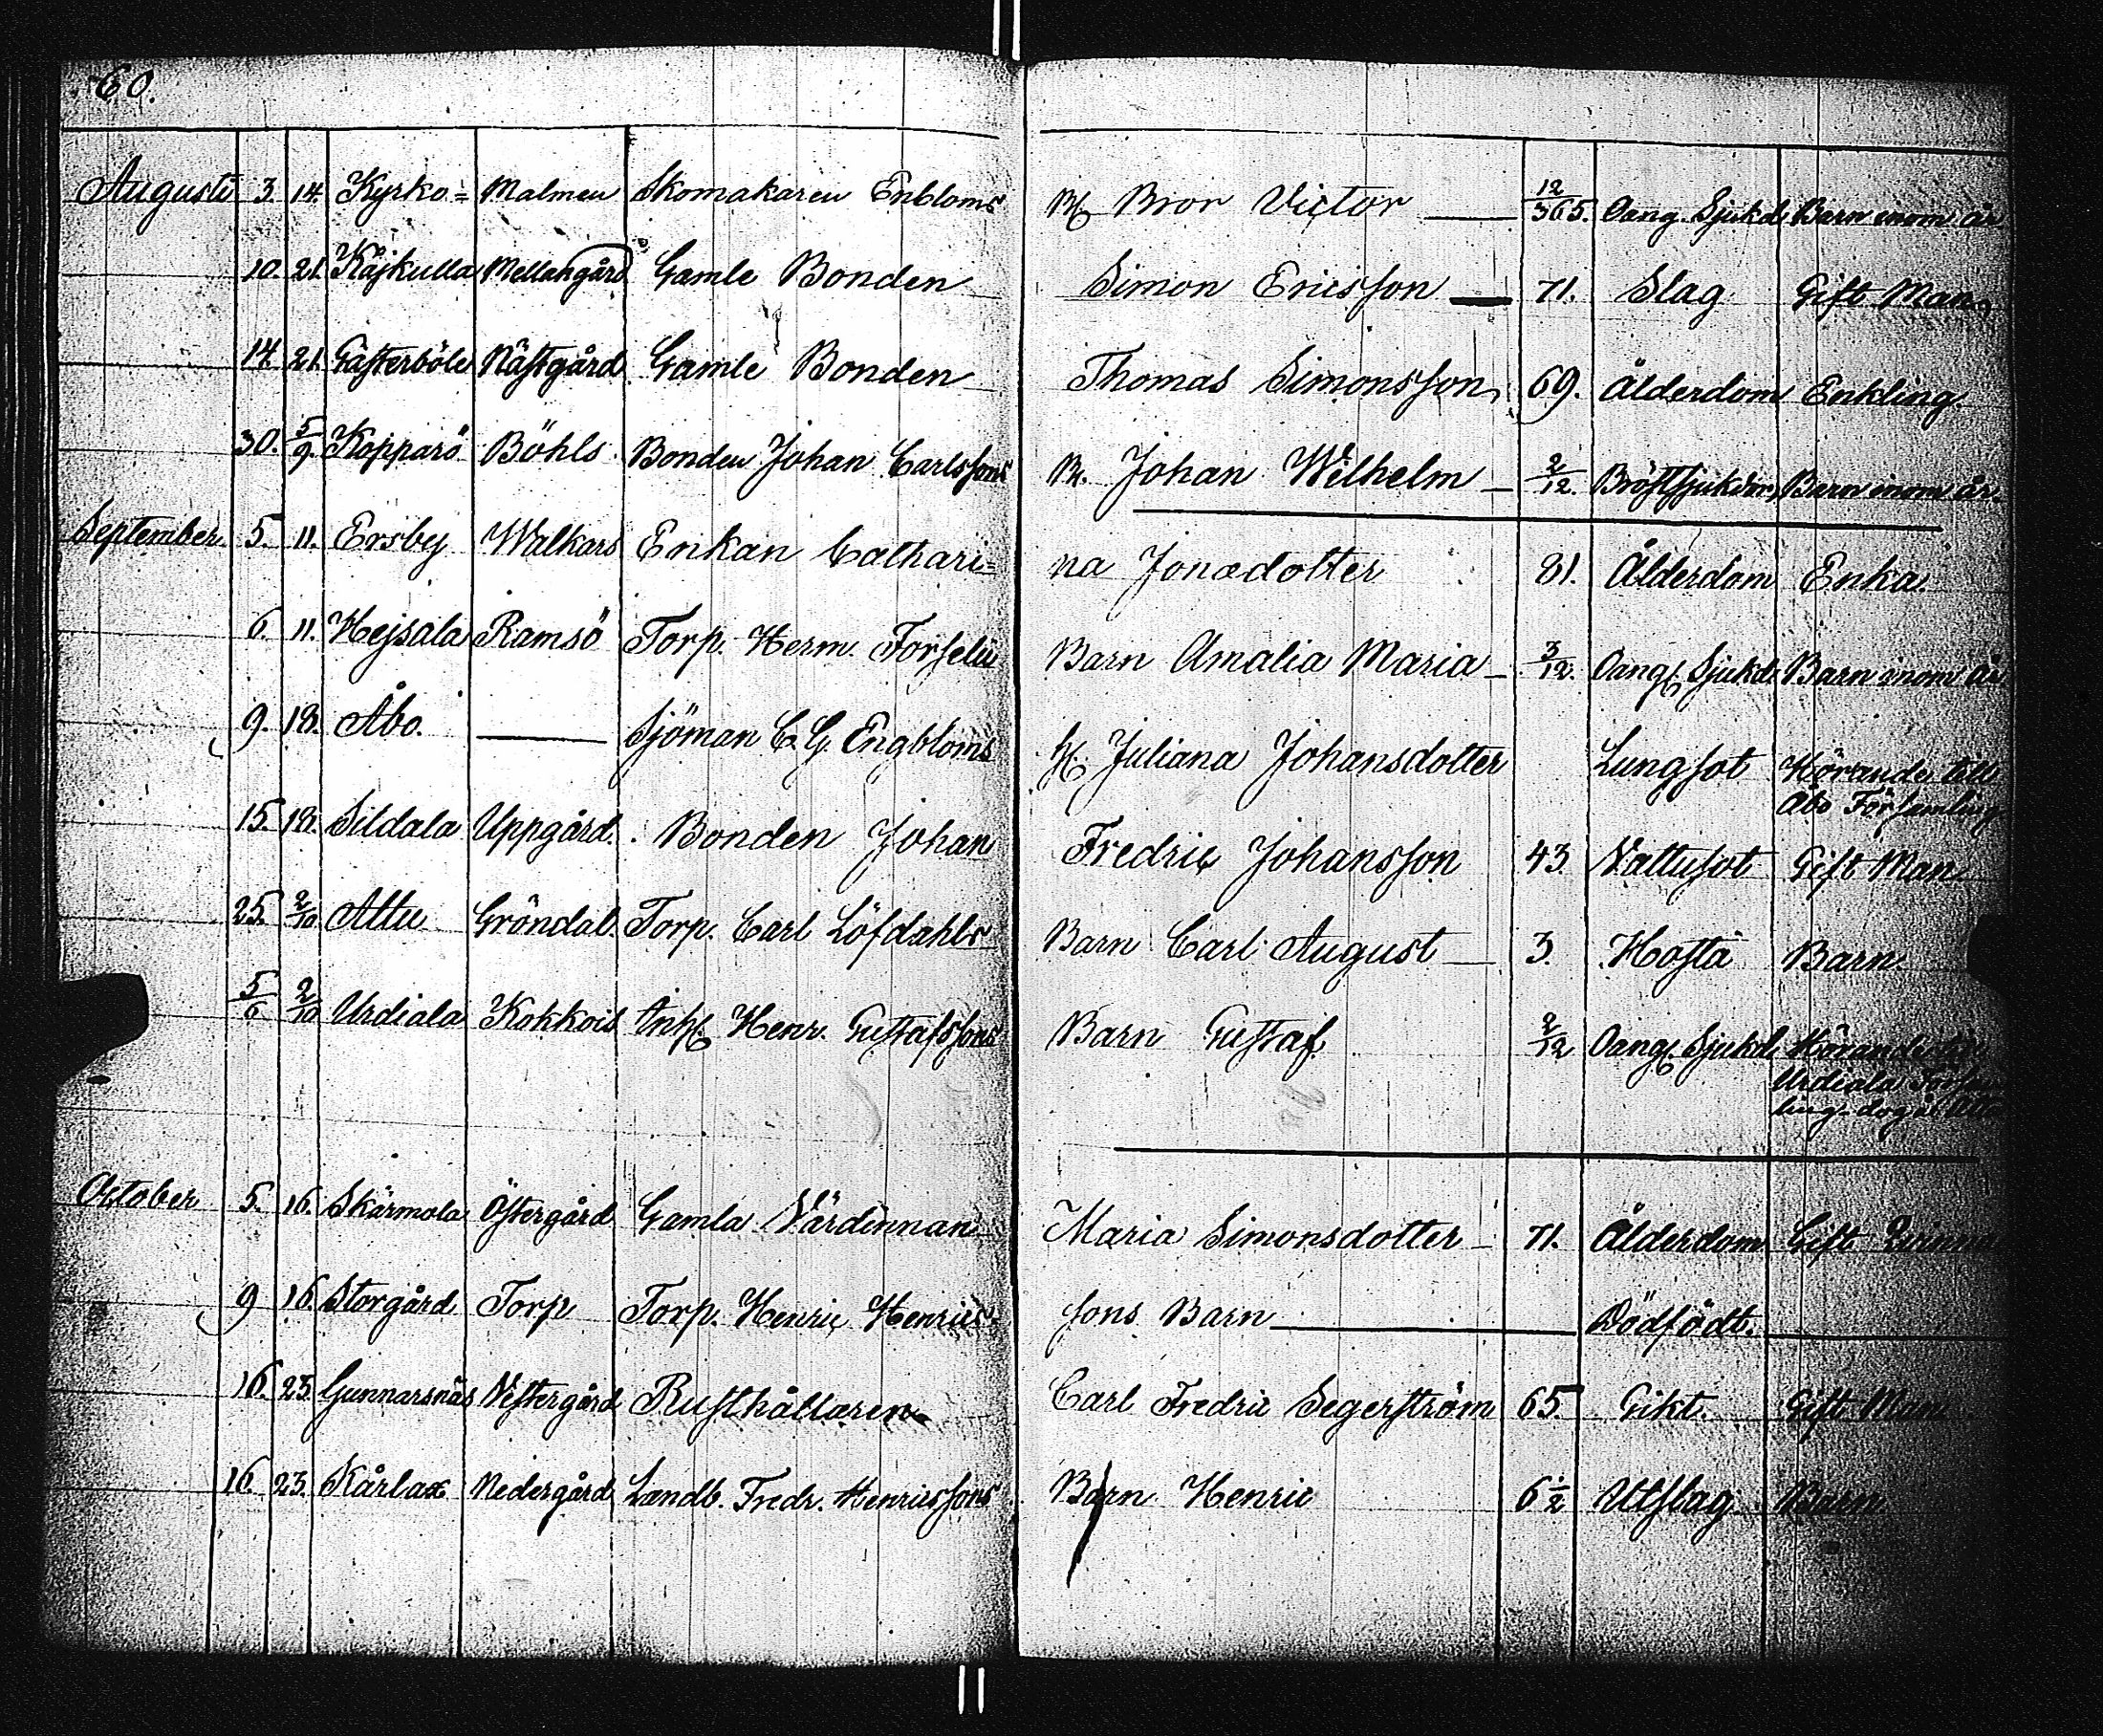 60.
Augusti 3. 14. Kyrko= Malmen Skomakaren Enbloms Bror Victor 12/365. Oang. Sjukd. Barn inom år
10. 21. Kåjkulla Mellangård Gamle Bonden Simon Ericsson 71. Slag Gift Man
14. 21. Gästerböle Nästgård Gamle Bonden Thomas Simonsson 69. Ålderdom Enkling.
30. 5/9. Kopparö Böhls Bonden Johan Carlssons Johan Wilhelm 2/12. Bröstsjukdom Barn inom år
September. 5. 11. Ersby Walkars Enkan Cathari= na Jonædotter 81. Ålderdom Enka.
6. 11. Hejsala Ramsö Torp. Herm. Forselii Barn Amalia Maria 3/12. Oang. Sjukd. Barn inom år
9. 18. Åbo. Sjöman C. G. Engbloms H. Juliana Johansdotter Lungsot Hörande till
Åbo Församling
15. 18. Sildala Uppgård. Bonden Johan Fredric Johansson 43. Nattusot Gift Man
25. 2/10 Attu Gröndal Torp. Carl Löfdahls Barn Carl August 3. Hosta Barn
5/6 2/10 Urdiala Kokkois Inh. Henr. Gustafssons Barn Gustaf 2/12 Oang. Sjukd. Hörande till
Urdiala Försam
ling. dog å Att
October 5. 16. Skärmola Östergård Gamla Värdinnan Maria Simonsdotter 71. Ålderdom Gift Qvinna
9 16. Storgård Torp Torp. Henric Henrics- sons Barn Dödfödt.
16. 23. Gunnarsnäs Vestergård Rusthållaren Carl Fredric Segerström 65 Gikt. Gift Man
16. 23. Kårlax Nedergård Landb. Fredr. Henricssons Barn Henric 6 1/2 Utslag Barn